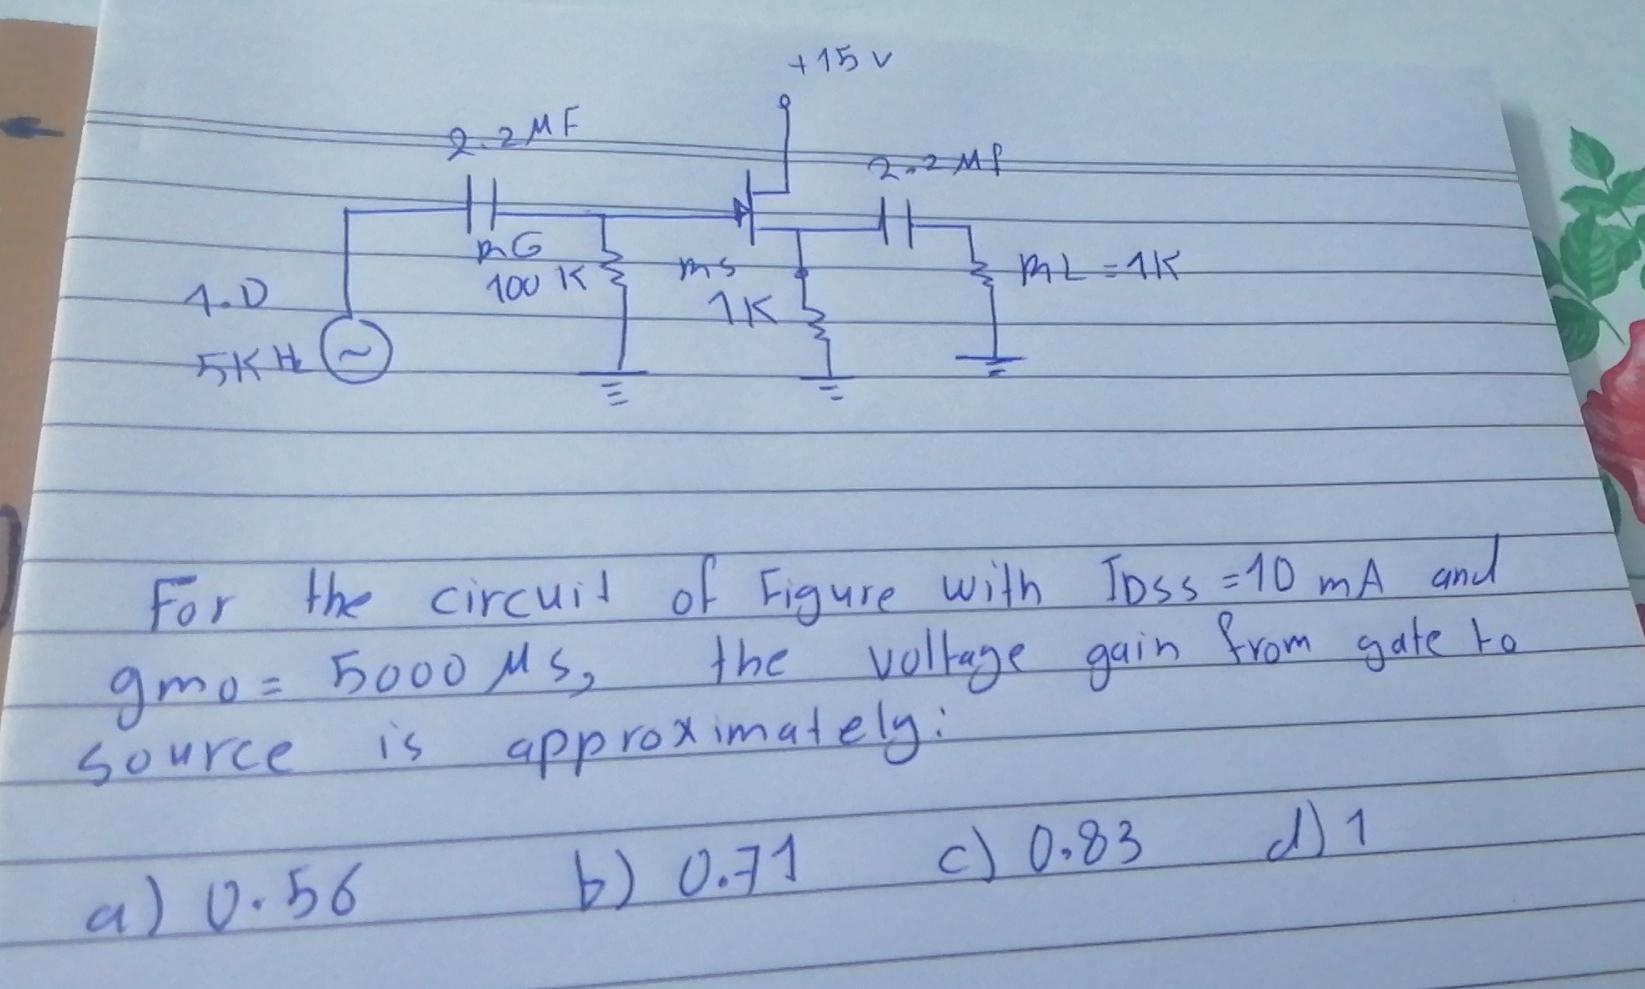 +15 v
2.2 MF
2.2 Mf
RG
100 K
RS
1K
RL = 1K
1.0
5K Hz
For the circuit of Figure with IDSS = 10 mA and
gmo = 5000 MS, the voltage gain from gate to
source is approximately:
a) 0.56 b) 0.71 c) 0.83 d) 1